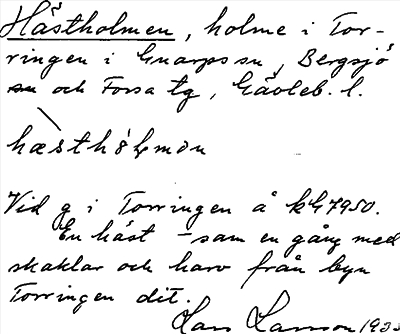 Hästholmen, holme i Tor-
ringen i Gnarps sn, Bergsjö
sn och Forsa tg, Gävleb. l.
hæsthɷlmən
Vid g i Torringen å kbl 7950.
En häst – sam en gång med
skaklar och harv från byn
Torringen dit.
Lars Larsson 1933